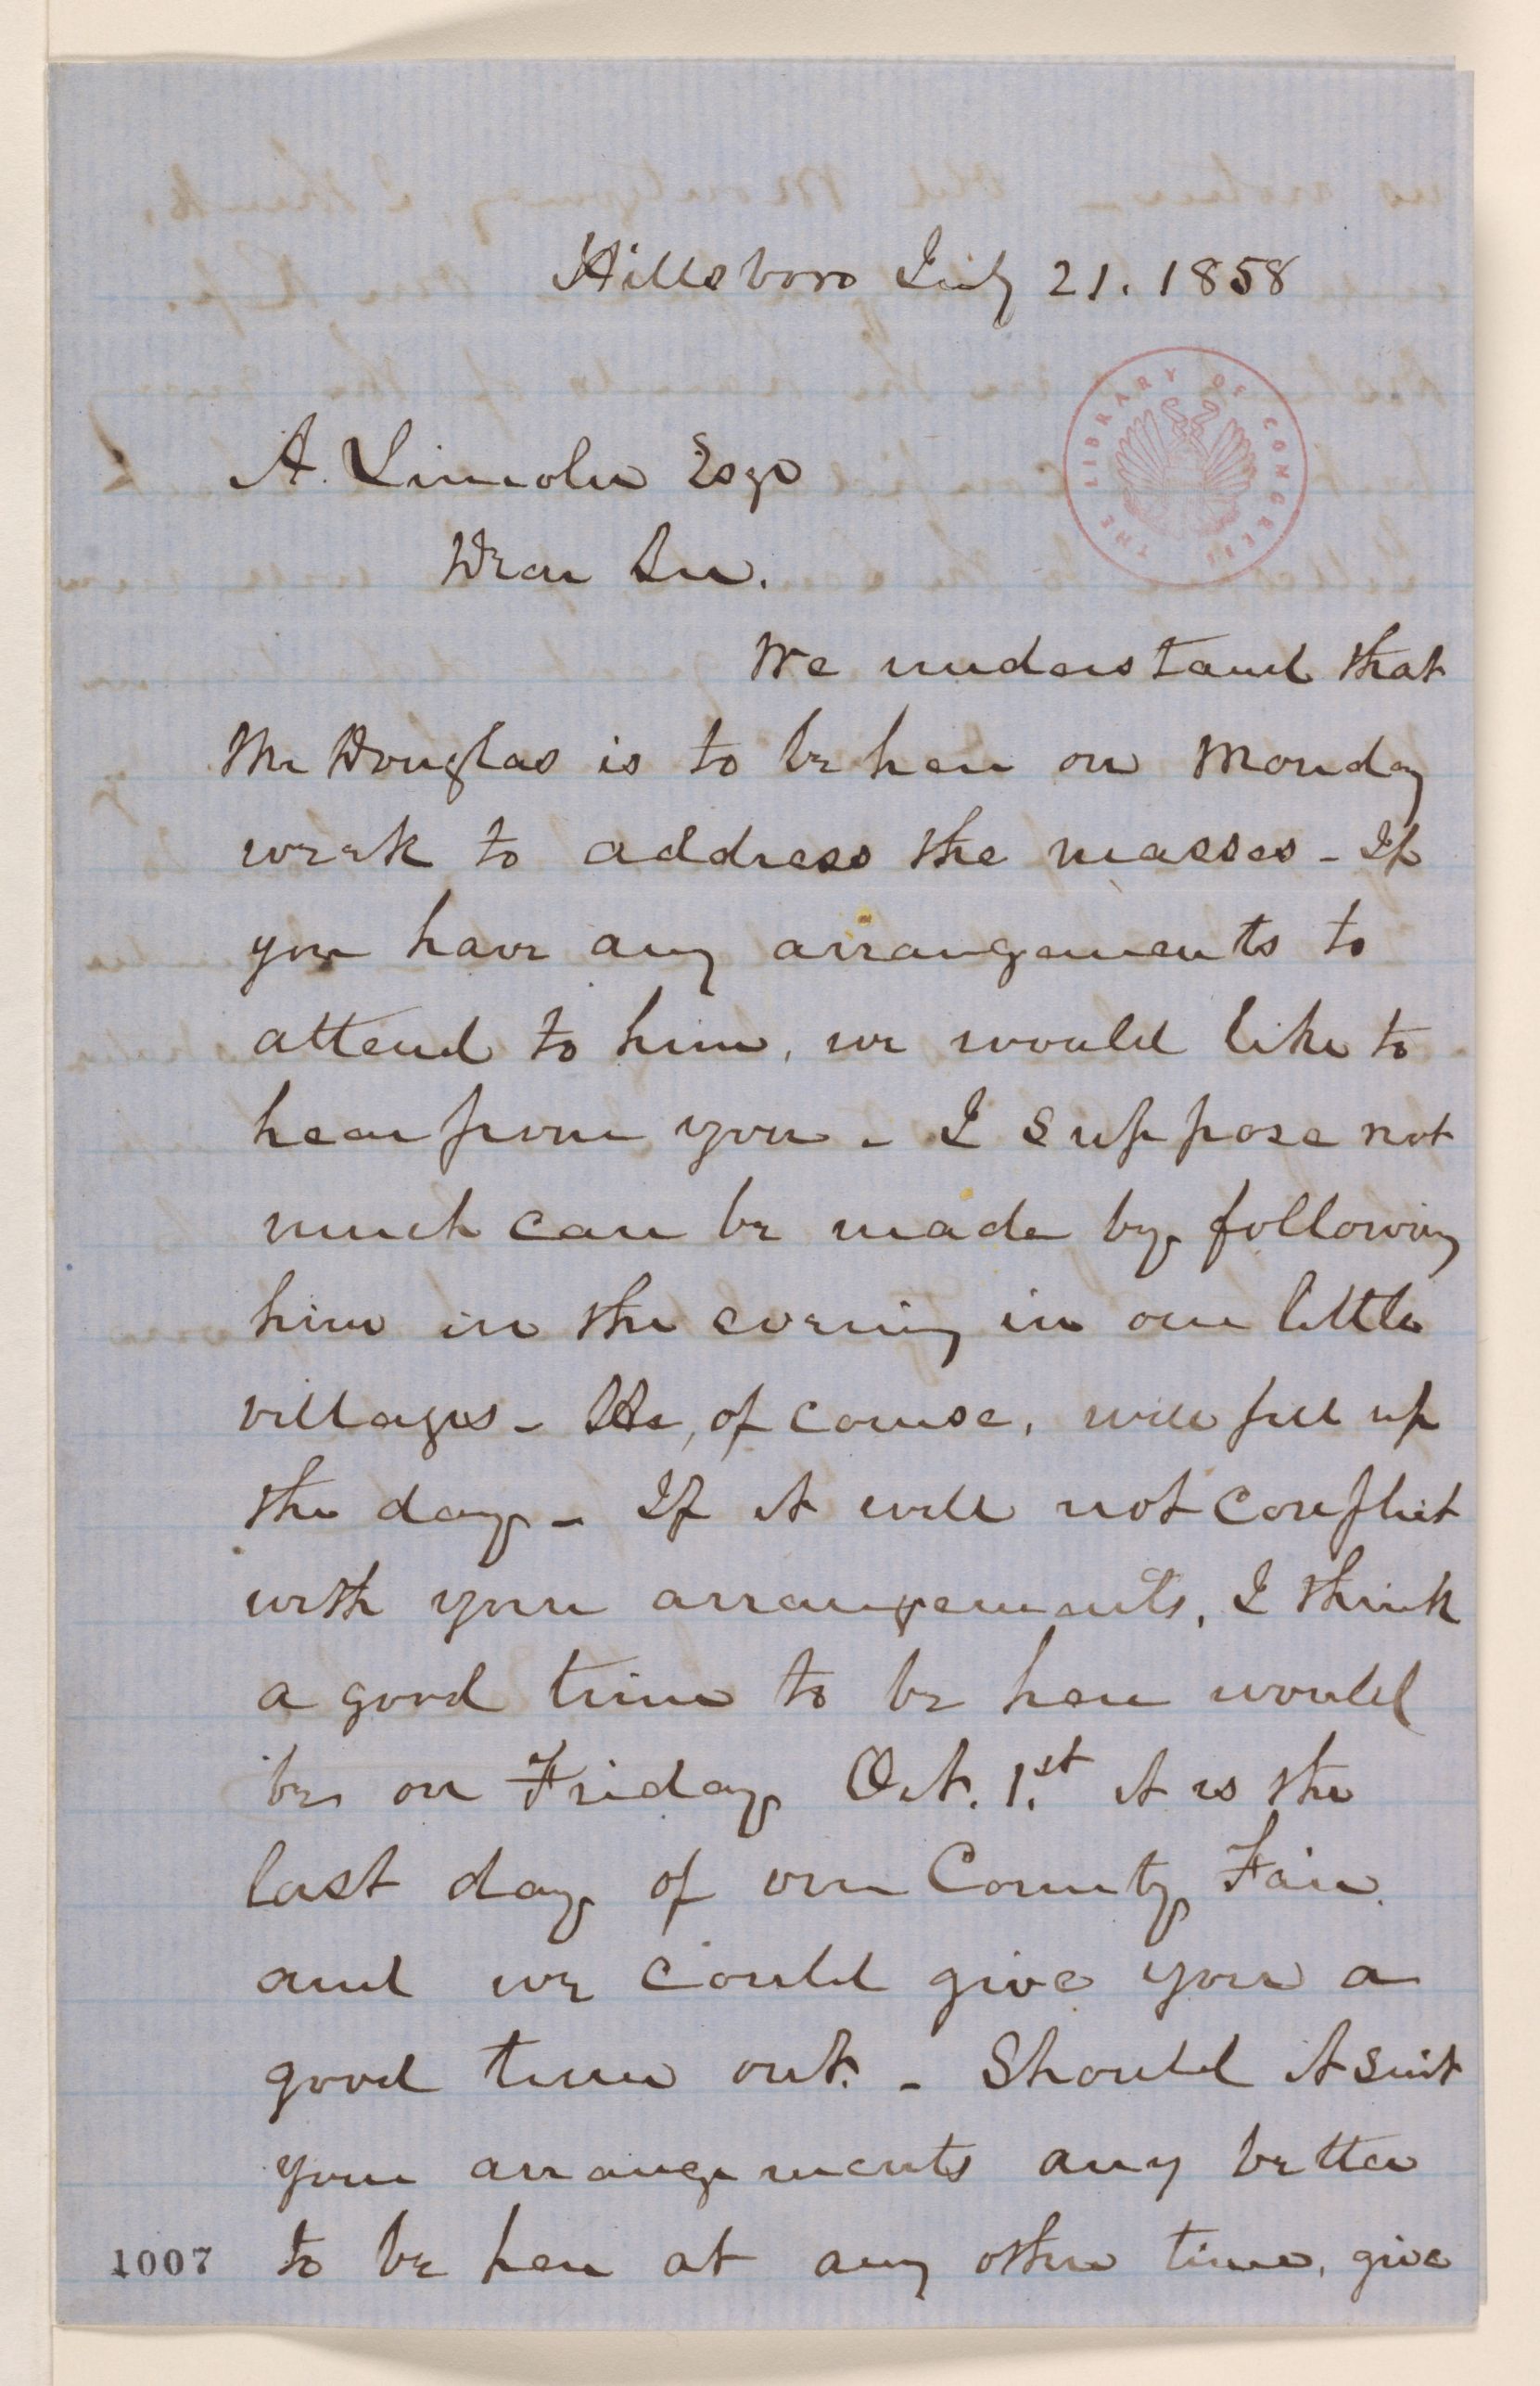 Hillsboro July 21. 1858
THE LIBRARY OF CONGRESS
A. Lincoln Esqr
Dear Sir.
We understand that
Mr Douglas is to be here on Monday
week to address the masses - If
you have any arrangements to
attend to him, we would like to
hear from you - I suppose not
much can be made by following
him in the evening in our little
villages - He, of course, will fill up
the day - If it will not conflict
with your arrangements, I think
a good time to be here would
be on Friday Oct. 1st it is the
last day of our County Fair
and we could give you a
good turn out. - Should it suit
your arrangements any better
to be here at any other time, give
1007